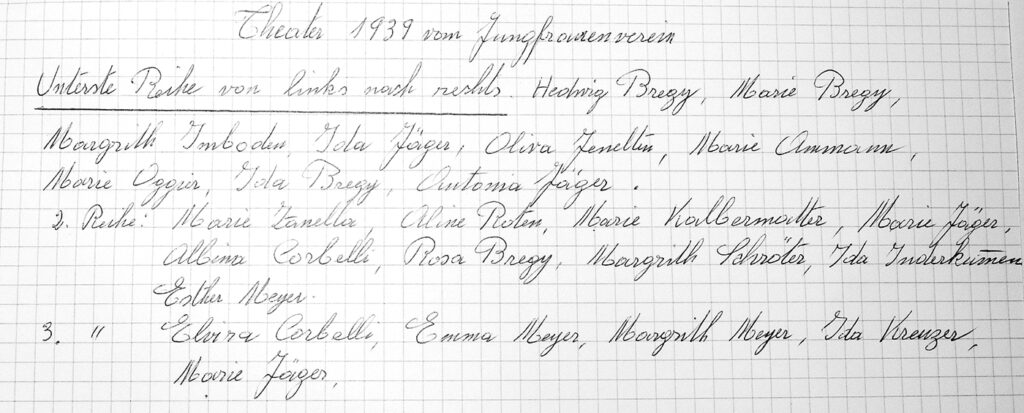 Theater 1939 vom Jungfrauenverein
Unterste Reihe von links nach rechts. Hedwig Bregy, Marie Bregy,
Margrith Imboden, Ida Jäger, Oliva Jenelten, Marie Ammann,
Marie Oggier, Ida Bregy, Antonia Jäger.
2. Reihe: Marie Zanella, Aline Roten, Marie Kalbermatter, Marie Jäger,
Albina Corbelli, Rosa Bregy, Margrith Schröter, Ida Inderkum̄en
Esther Meyer.
3. " Elvira Corbelli, Emma Meyer, Margrith Meyer, Ida Kreuzer,
Marie Jäger,